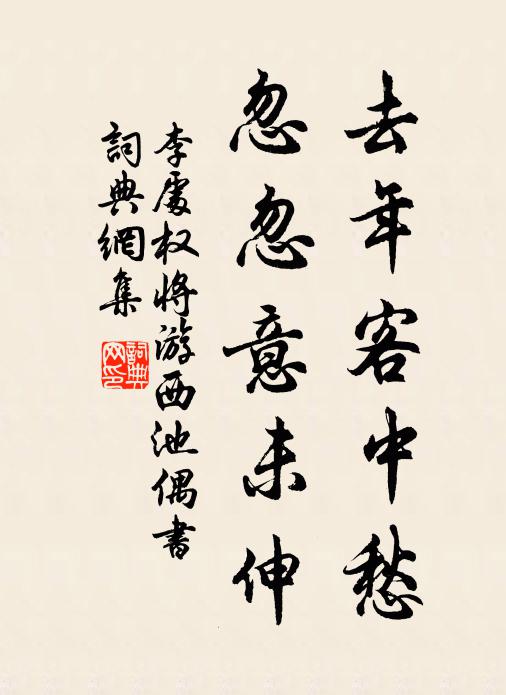 去年客中愁
忽忽意未伸
李處权将游西池偶書
詞典網集
詞典網印